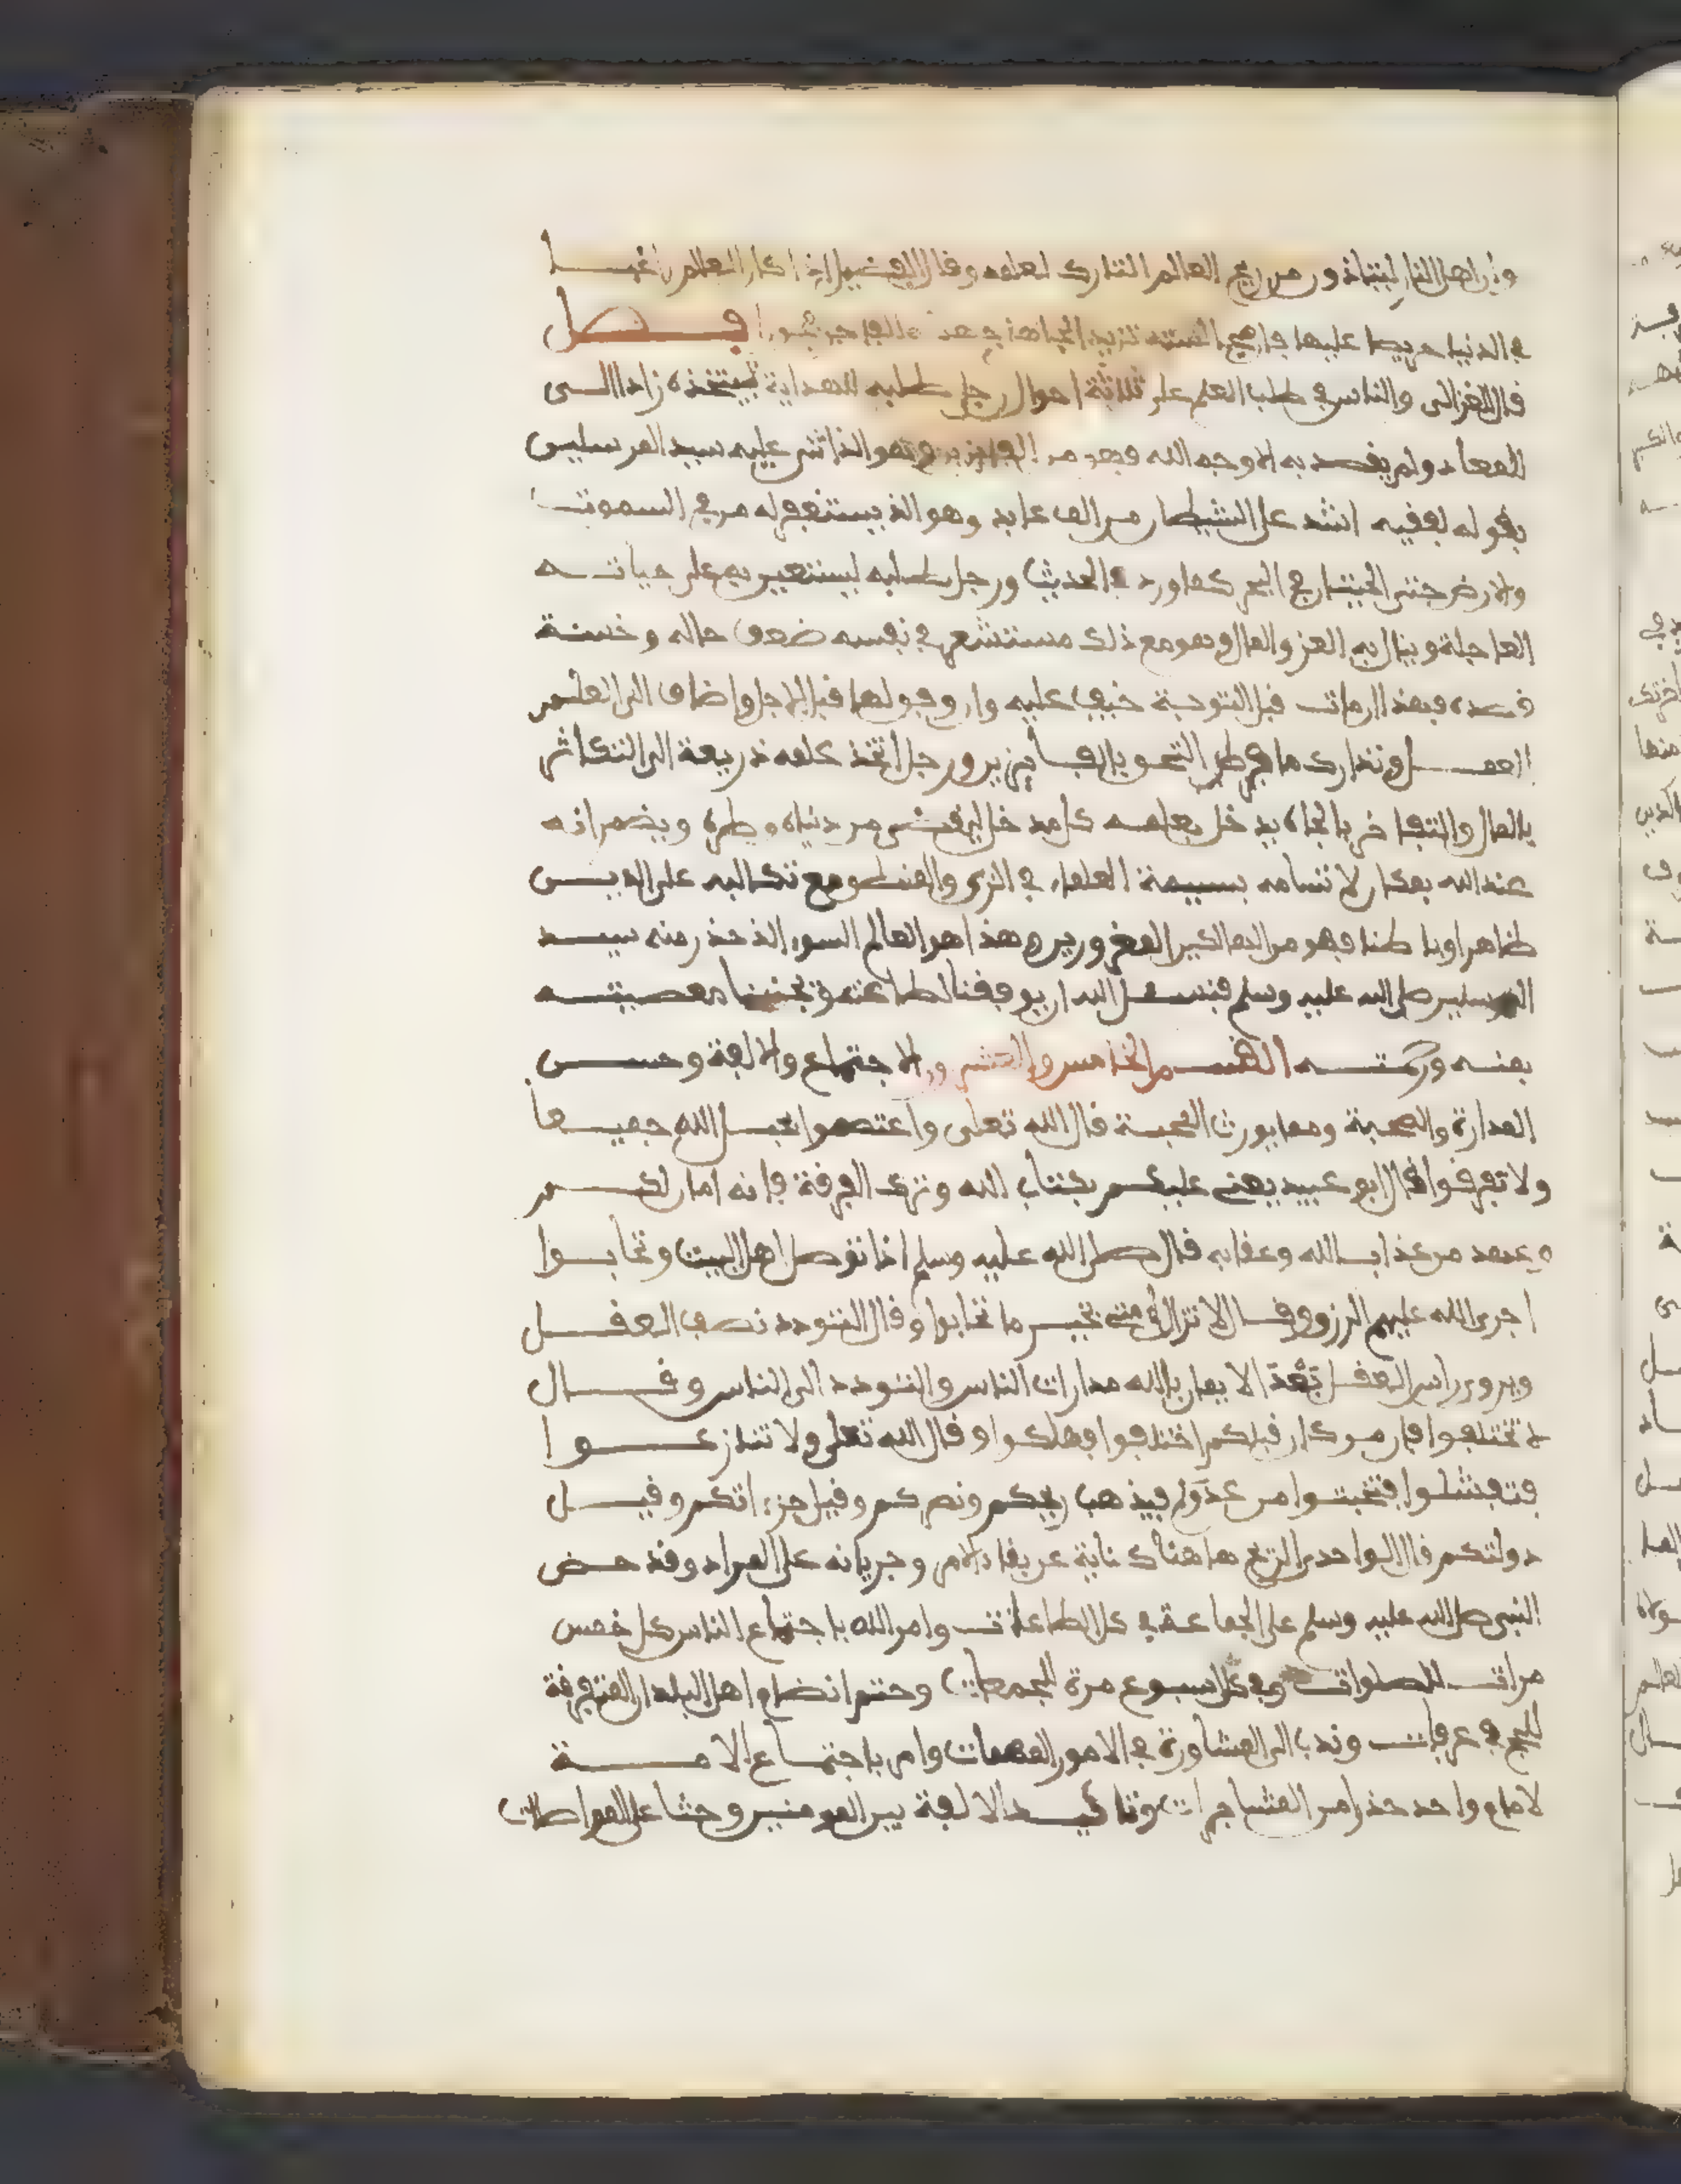 وان اهل النار ليتاذون من ريح العالم التارك لعلمه وقال الفضيل اذا كان العالم راغبا
في الدنيا حريصا عليها فان مجالسته تزيد الجاهل الفاجر فجورا فصل
قال الغزالي والناس في طلب العلم على ثلاثة احوال رجل طلبه للهداية ليتخذه زادا الى
المعاد ولم يقصد به الا وجه الله فهو من الفايزين وهو الذ اثنى عليه سيد المرسلين
بقوله لفقيه اشد على الشيطان من الف عابد وهو الذ يستغفر له من في السموت
والارض حتى الحيتان في البحر كما ورد في الحديث ورجل طلبه ليستعين به على حياته
العاجلة وينال به العز والمال وهو مع ذلك مستشعر في نفسه ضعف حاله وخسة
قصده فهذا ان مات قبل التوبة خيف عليه وان وفق لها قبل الاجل واضاف الى العلم
العمل وتدارك ما فرط التحق بالفايزين ورجل اتخذ علمه ذريعة الى التكاثر
بالمال والتفاخر بالجاه يدخل بعلمه كل مدخل ليقضي من دنياه وطره ويضمر انه
عند الله بمكان لاتسامه بسيمة العلماء في الزي والمنطق مع تكالبه على الدين
ظاهرا وباطنا فهو من الهالكين المغرورين وهذا هو العالم السوء الذ حذر منه سيد
المرسلين صلى الله عليه وسلم فنسعل الله ان يوفقنا لطاعته ويجنبنا معصيته
بمنه ورحمته القسم الخامس والعشرون الاجتماع والالفة وحسن
المدارة والصحبة ومما يورث المحبة قال الله تعلى واعتصموا بحبل الله جميعا
ولا تفرقوا قال ابو عبيد يعني عليكم بكتاب الله وترك الفرقة فانه امان لكم
وعهد من عذاب الله وعقابه قال صلى الله عليه وسلم اذا تواصل اهل البيت وتحابوا
اجرى الله عليهم الرزق وقال لا تزال امتي بخير ما تحابوا وقال التودد نصف العقل
ويروى راس العقل بعد الايمان بالله مدارات الناس والتودد الى الناس وقال
لا تختلفوا فان من كان قبلكم اختلفوا فهلكوا وقال الله تعلى ولا تنازعوا
فتفشلوا فتجبنوا من عدوكم فيذهب ريحكم ونصركم وقيل جرءاتكم وقيل
دولتكم قال الواحدي الريح هاهنا كناية عن بقاء الامر وجريانه على المراد وقد حض
النبي صلى الله عليه وسلم على الجماعة في كل الطاعات وامر الله باجتماع الناس كل خمس
مرات للصلوات وفي كل اسبوع مرة للجمعات وحتم انضمام اهل البلدان المتفرقة
للحج في عرفات وندب الى المشاورة في الامور المهمات وامر باجتماع الامة
لامام واحد حذرا من المشاجرات وتاكيد الالفة بين المومنين وحثا على المواصلات